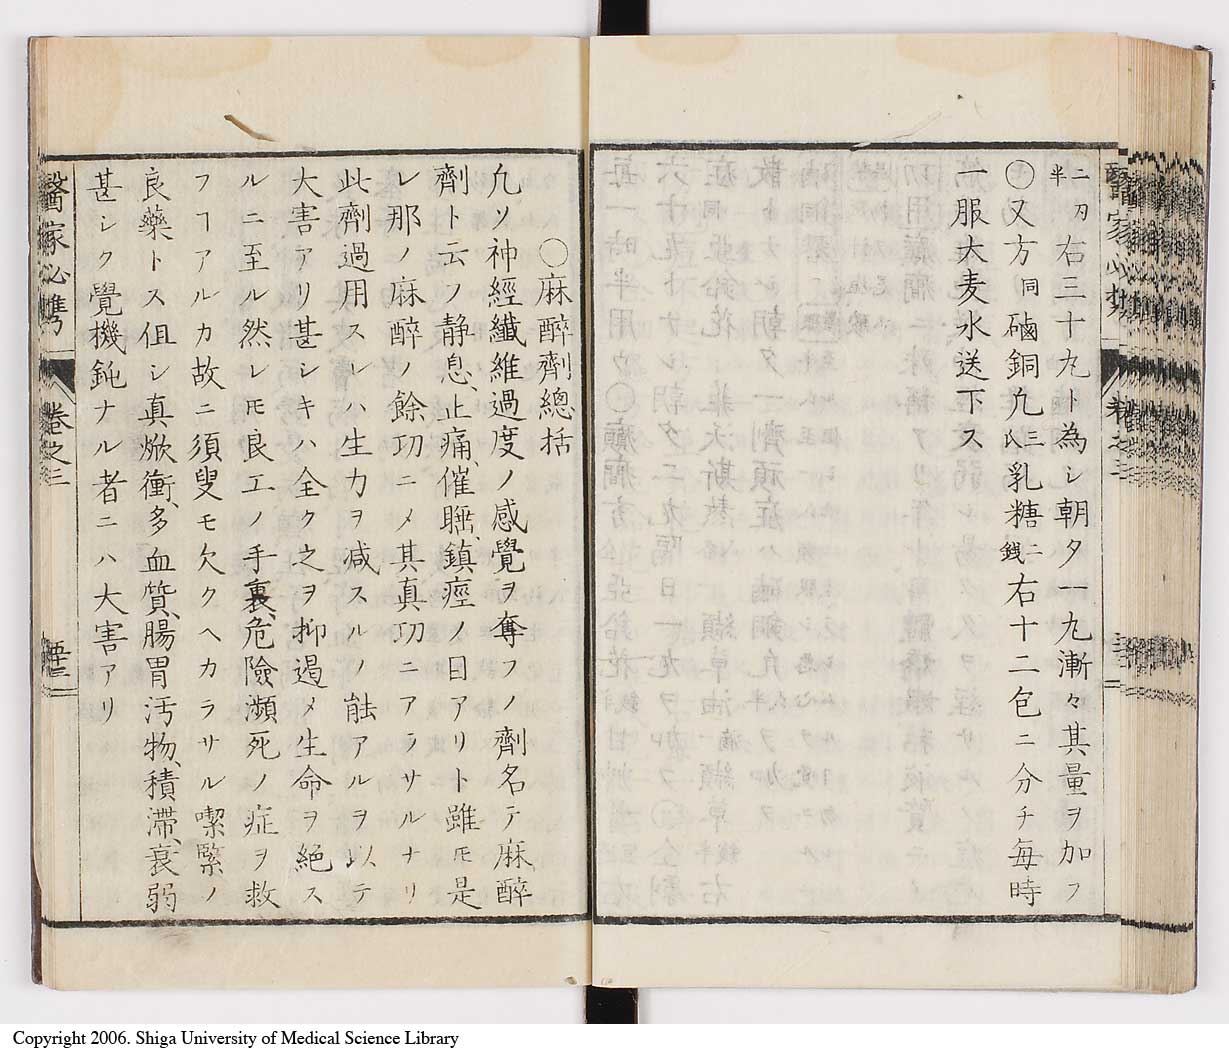 二刃半右三十丸ト為シ朝夕一丸漸々其量ヲ加フ
○又方同礆銅九三氏乳糖二銭右十二包ニ分チ毎時
一服大麦水送下ス
醫家必携
卷之三
○麻醉劑總括
凢ソ神經纖維過度ノ感覺ヲ奪フノ劑名テ麻醉
劑ト云フ静息、止痛、催眠、鎮痙ノ目アリト雖モ是
レ那ノ麻醉ノ餘功ニメ其真功ニアラサルナリ
此劑過用スレハ生力ヲ減スルノ能アルヲ以テ
大害アリ甚シキハ全ク之ヲ抑遏メ生命ヲ絕ス
ルニ至ル然レモ良工ノ手裏、危險瀕死ノ症ヲ救
フヿアルカ故ニ須叟モ欠クヘカラサル喫緊ノ
良藥トス但シ真焮衝、多血質、腸胃汚物、積滞、衰弱
甚シク覺機鈍ナル者ニハ大害アリ
醫家必携
卷之三
Copyright 2006. Shiga University of Medical Science Library